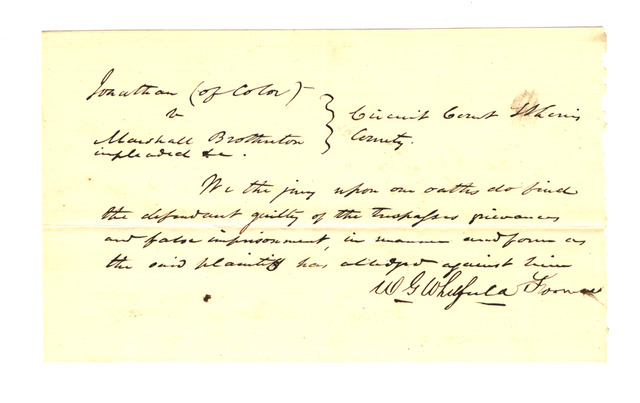 Jonathan (of Color)
v
Circuit Court St Louis
Marshall Brotherton
County.
impleaded &c.
We the jury upon our oaths do find
the defendant guilty of the trespasses grievances
and false imprisonment, in manner and form as
the said plaintiff has alledged against him
W G Foreman